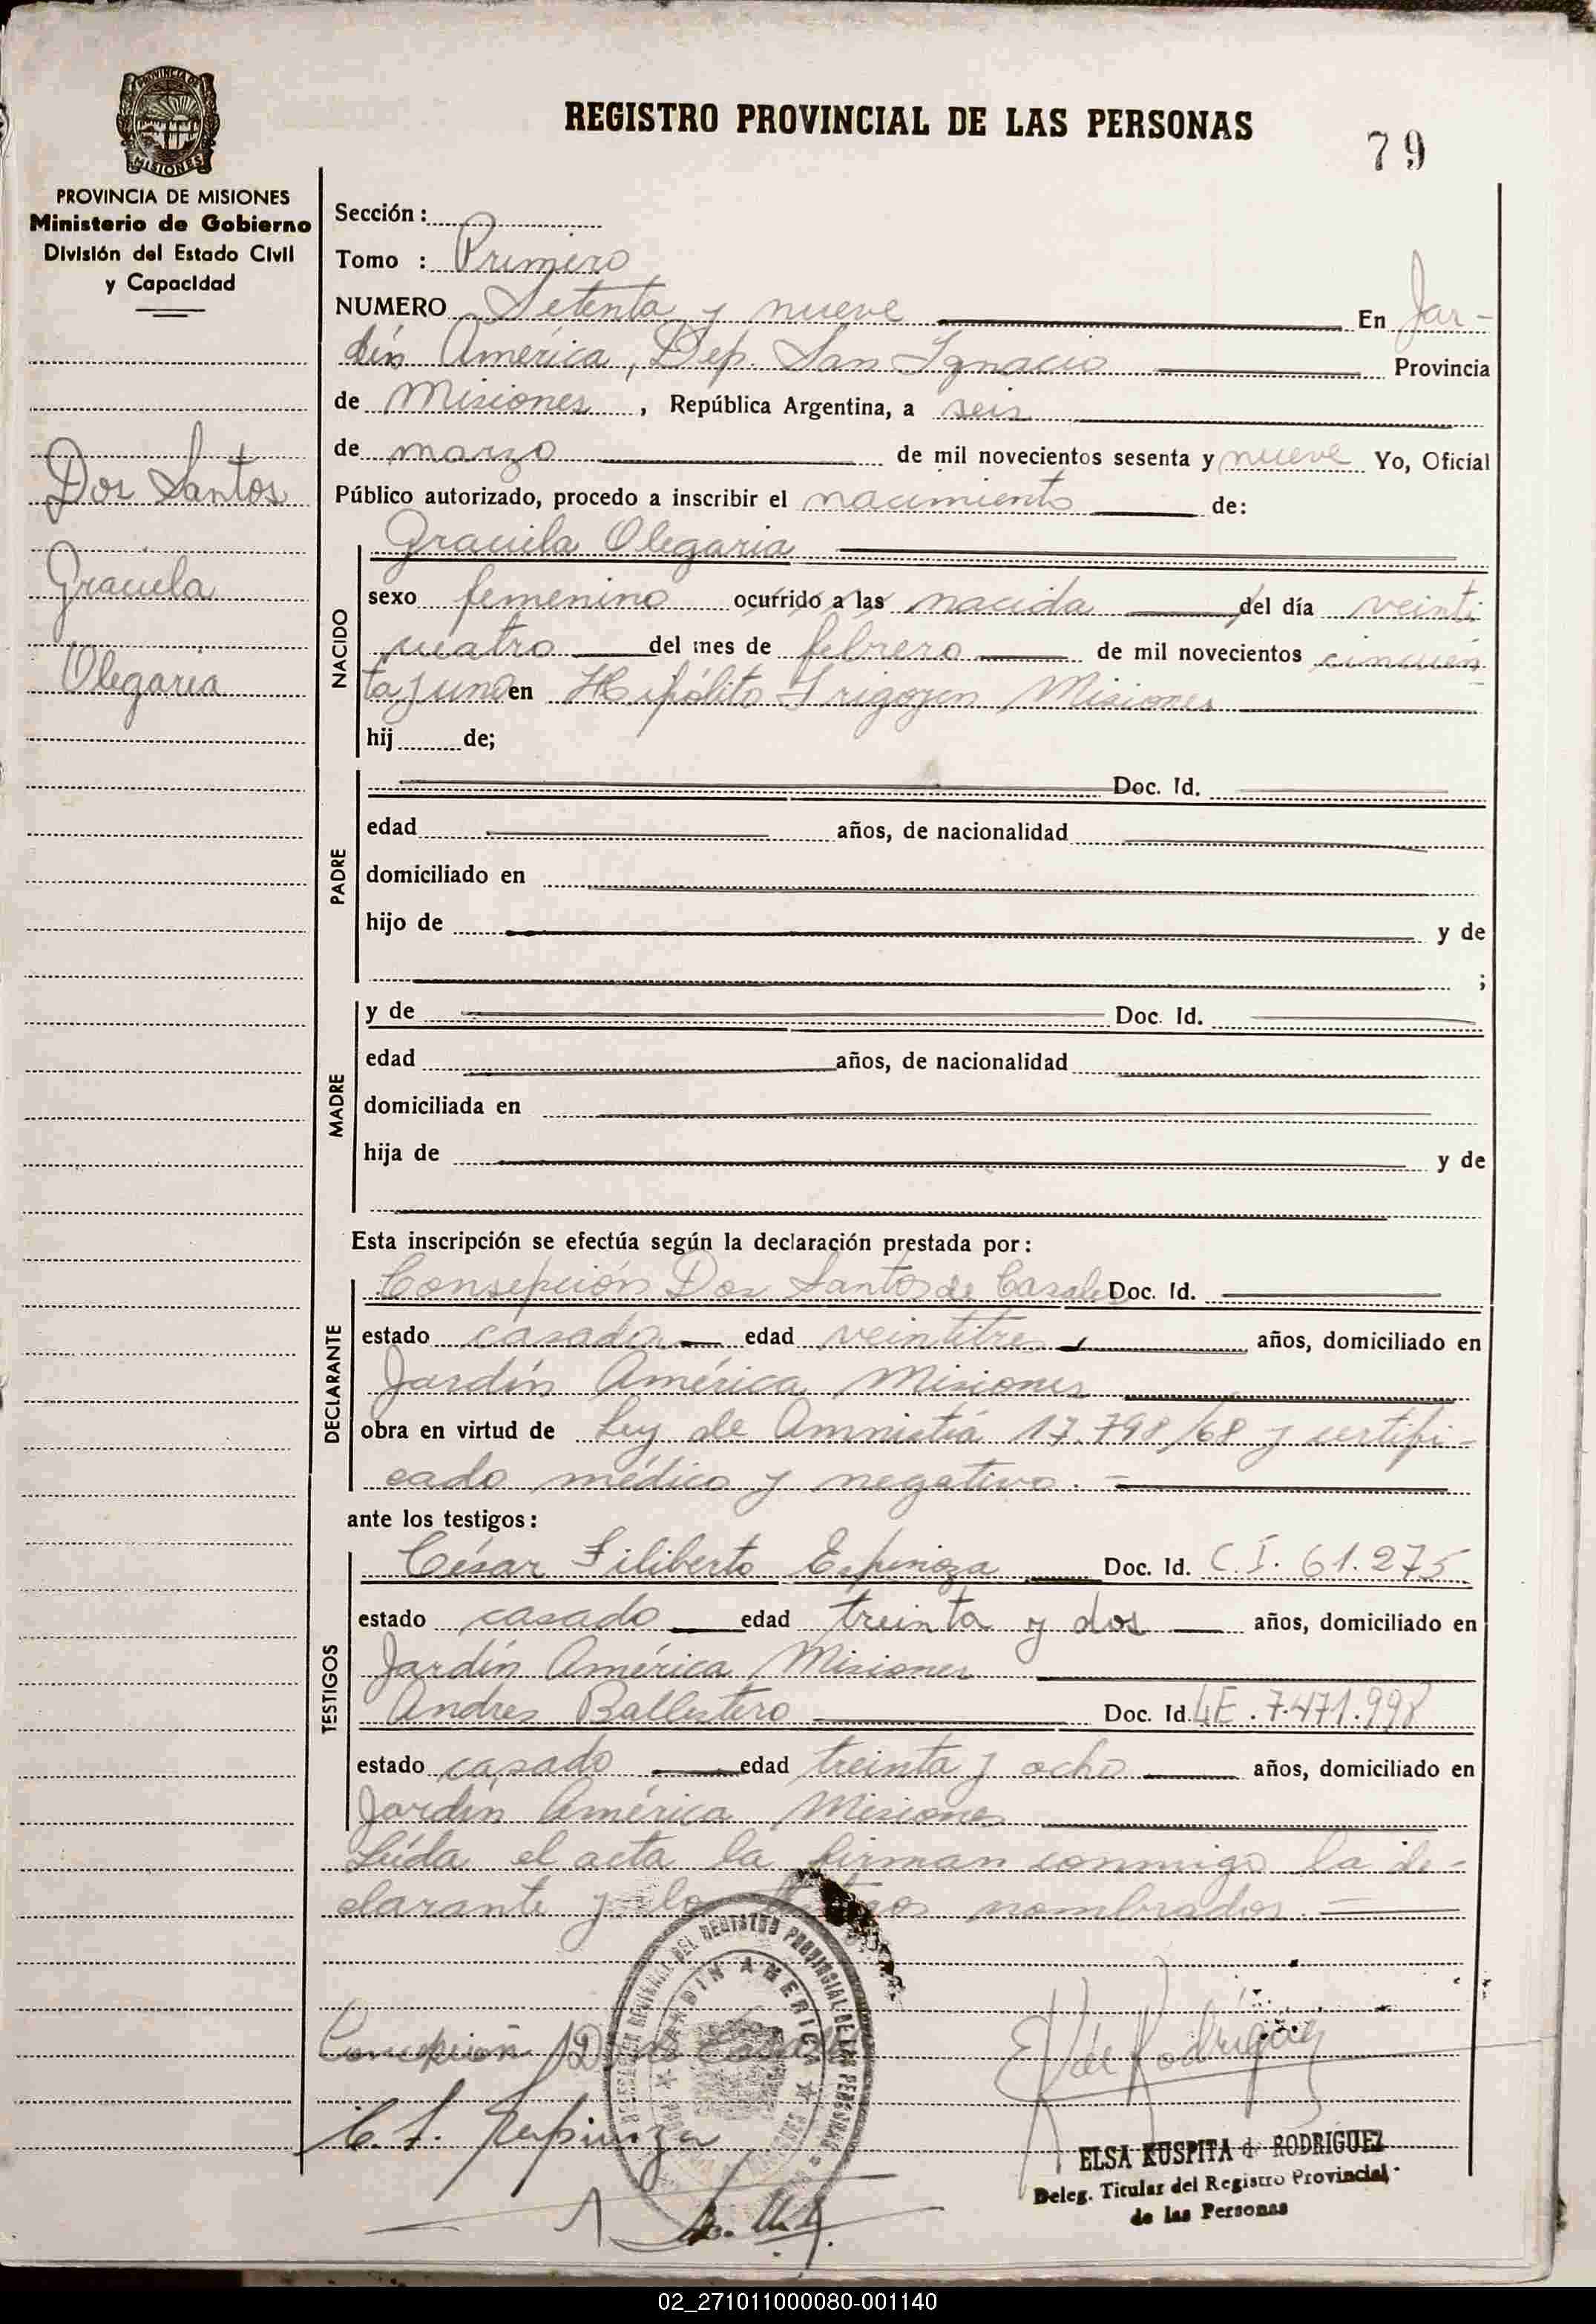 PROVINCIA DE
MISIONES
PROVINCIA DE MISIONES
Ministerio de Gobierno
División del Estado Civil
y Capacidad
REGISTRO PROVINCIAL DE LAS PERSONAS
79
Dos Santos
Graciela
Olegaria
Sección :
Tomo : Primero
NUMERO Setenta y nueve En Jar-
dín América, Dep. San Ignacio Provincia
de Misiones , República Argentina, a seis
de marzo de mil novecientos sesenta y nueve Yo, Oficial
Público autorizado, procedo a inscribir el nacimiento de:
NACIDO
Graciela Olegaria
sexo femenino ocurrido a las nacida del día veinti
cuatro del mes de febrero de mil novecientos cincuen
ta y uno en Hipólito Irigoyen Misiones
hij de;
PADRE
Doc. Id.
edad años, de nacionalidad
domiciliado en
hijo de y de
;
MADRE
y de Doc. Id.
edad años, de nacionalidad
domiciliada en
hija de y de
Esta inscripción se efectúa según la declaración prestada por:
DECLARANTE
Consepción Dos Santos de Casales Doc. Id.
estado casada edad veintitres años, domiciliado en
Jardín América Misiones
obra en virtud de Ley de Amnistía 17.798/68 y certifi-
cado médico y negativo.=
ante los testigos:
TESTIGOS
César Filiberto Espinoza Doc. Id. C.I. 61.275
estado casado edad treinta y dos años, domiciliado en
Jardín América Misiones
Andres Ballestero Doc. Id. LE. 7.471.998
estado casado edad treinta y ocho años, domiciliado en
Jardín América Misiones
Leída el acta la firman conmigo la de-
clarante y los nombrados.
DEL REGISTRO PROVINCIAL DE LAS PERSONAS
JARDIN AMERICA
Concepción D
C. F. Espinoza
E K de Rodríguez
ELSA KUSPITA d RODRIGUEZ
Deleg. Titular del Registro Provincial
de las Personas
02_271011000080-001140